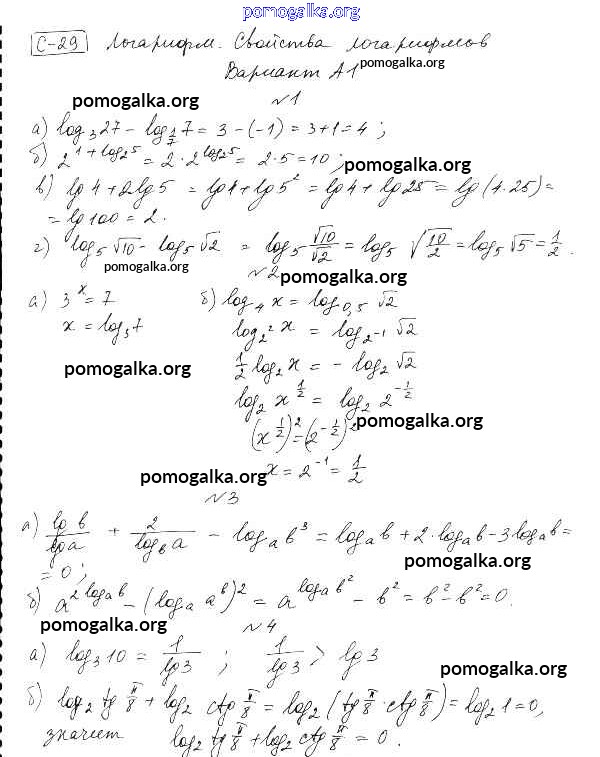 pomogalka.org
С-29 Логарифм. Свойства логарифмов
Вариант А1 pomogalka.org
№1
pomogalka.org
а) log₃27 − log_{1/7}7 = 3 − (−1) = 3+1 = 4 ;
б) 2^{1+log₂5} = 2 · 2^{log₂5} = 2·5 = 10 ; pomogalka.org
в) lg4 + 2lg5 = lg4 + lg5² = lg4 + lg25 = lg(4·25) =
= lg100 = 2.
г) log₅√10 − log₅√2 = log₅ √10/√2 = log₅ √(10/2) = log₅√5 = 1/2 .
pomogalka.org
№2 pomogalka.org
а) 3ˣ = 7 б) log₄ x = log_{0,5} √2
x = log₃7 log_{2²} x = log_{2⁻¹} √2
pomogalka.org 1/2 log₂ x = − log₂ √2
log₂ x^{1/2} = log₂ 2^{−1/2}
(x^{1/2})² = (2^{−1/2})² pomogalka.org
x = 2⁻¹ = 1/2
pomogalka.org
№3
а) lg b/lg a + 2/log_b a − log_a b³ = log_a b + 2·log_a b − 3log_a b =
= 0 ; pomogalka.org
б) a^{2log_a b} − (log_a a^b)² = a^{log_a b²} − b² = b² − b² = 0.
pomogalka.org №4
а) log₃10 = 1/lg3 ; 1/lg3 > lg3
pomogalka.org
б) log₂ tg π/8 + log₂ ctg π/8 = log₂ (tg π/8 · ctg π/8) = log₂1 = 0,
значит log₂ tg π/8 + log₂ ctg π/8 = 0 .